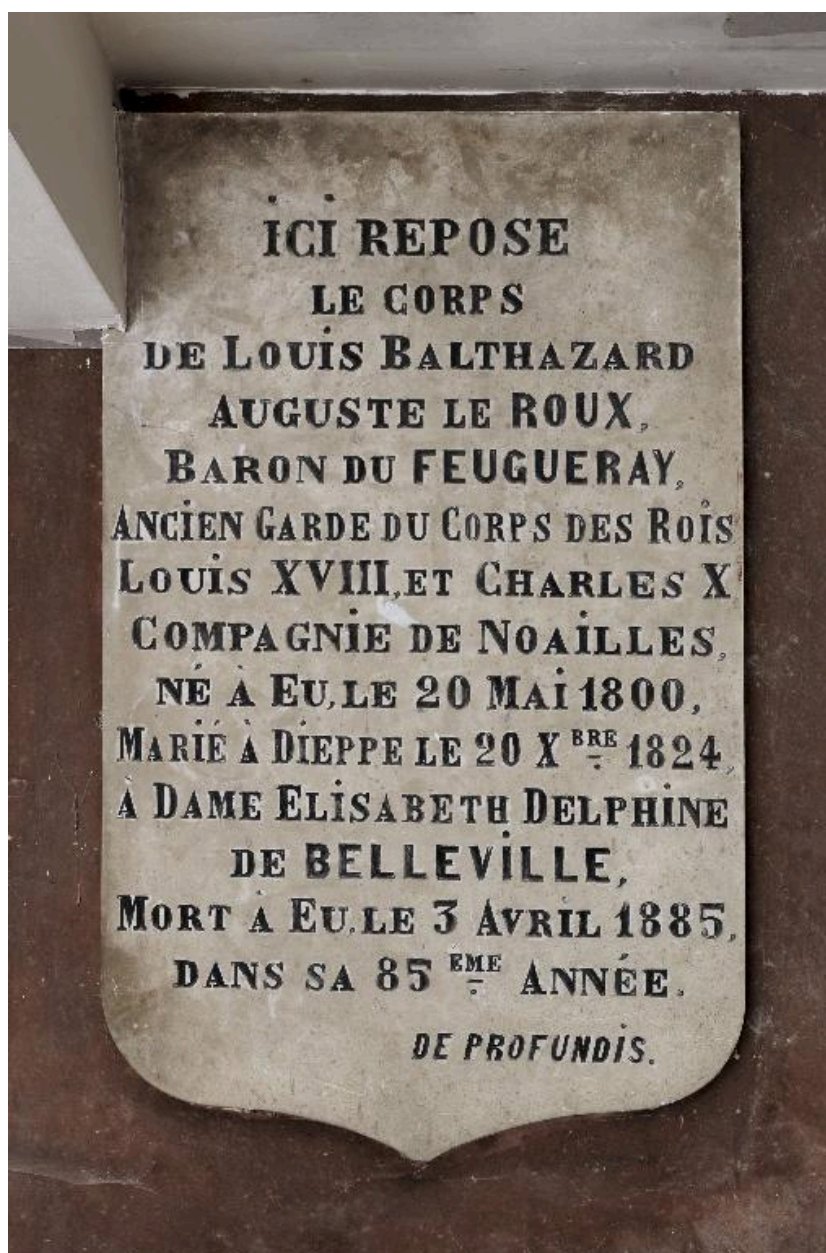 İCİ REPOSE
LE CORPS
DE LOUİS BALTHAZARD
AUGUSTE LE ROUX,
BARON DU FEUGUERAY,
ANCİEN GARDE DU CORPS DES ROİS
LOUİS XVIII, ET CHARLES X
COMPAGNİE DE NOAİLLES,
NÉ À EU, LE 20 MAİ 1800,
MARİÉ À DİEPPE LE 20 X BRE 1824,
À DAME ELİSABETH DELPHİNE
DE BELLEVİLLE,
MORT À EU, LE 3 AVRİL 1885,
DANS SA 85 EME ANNÉE.
DE PROFUNDİS.